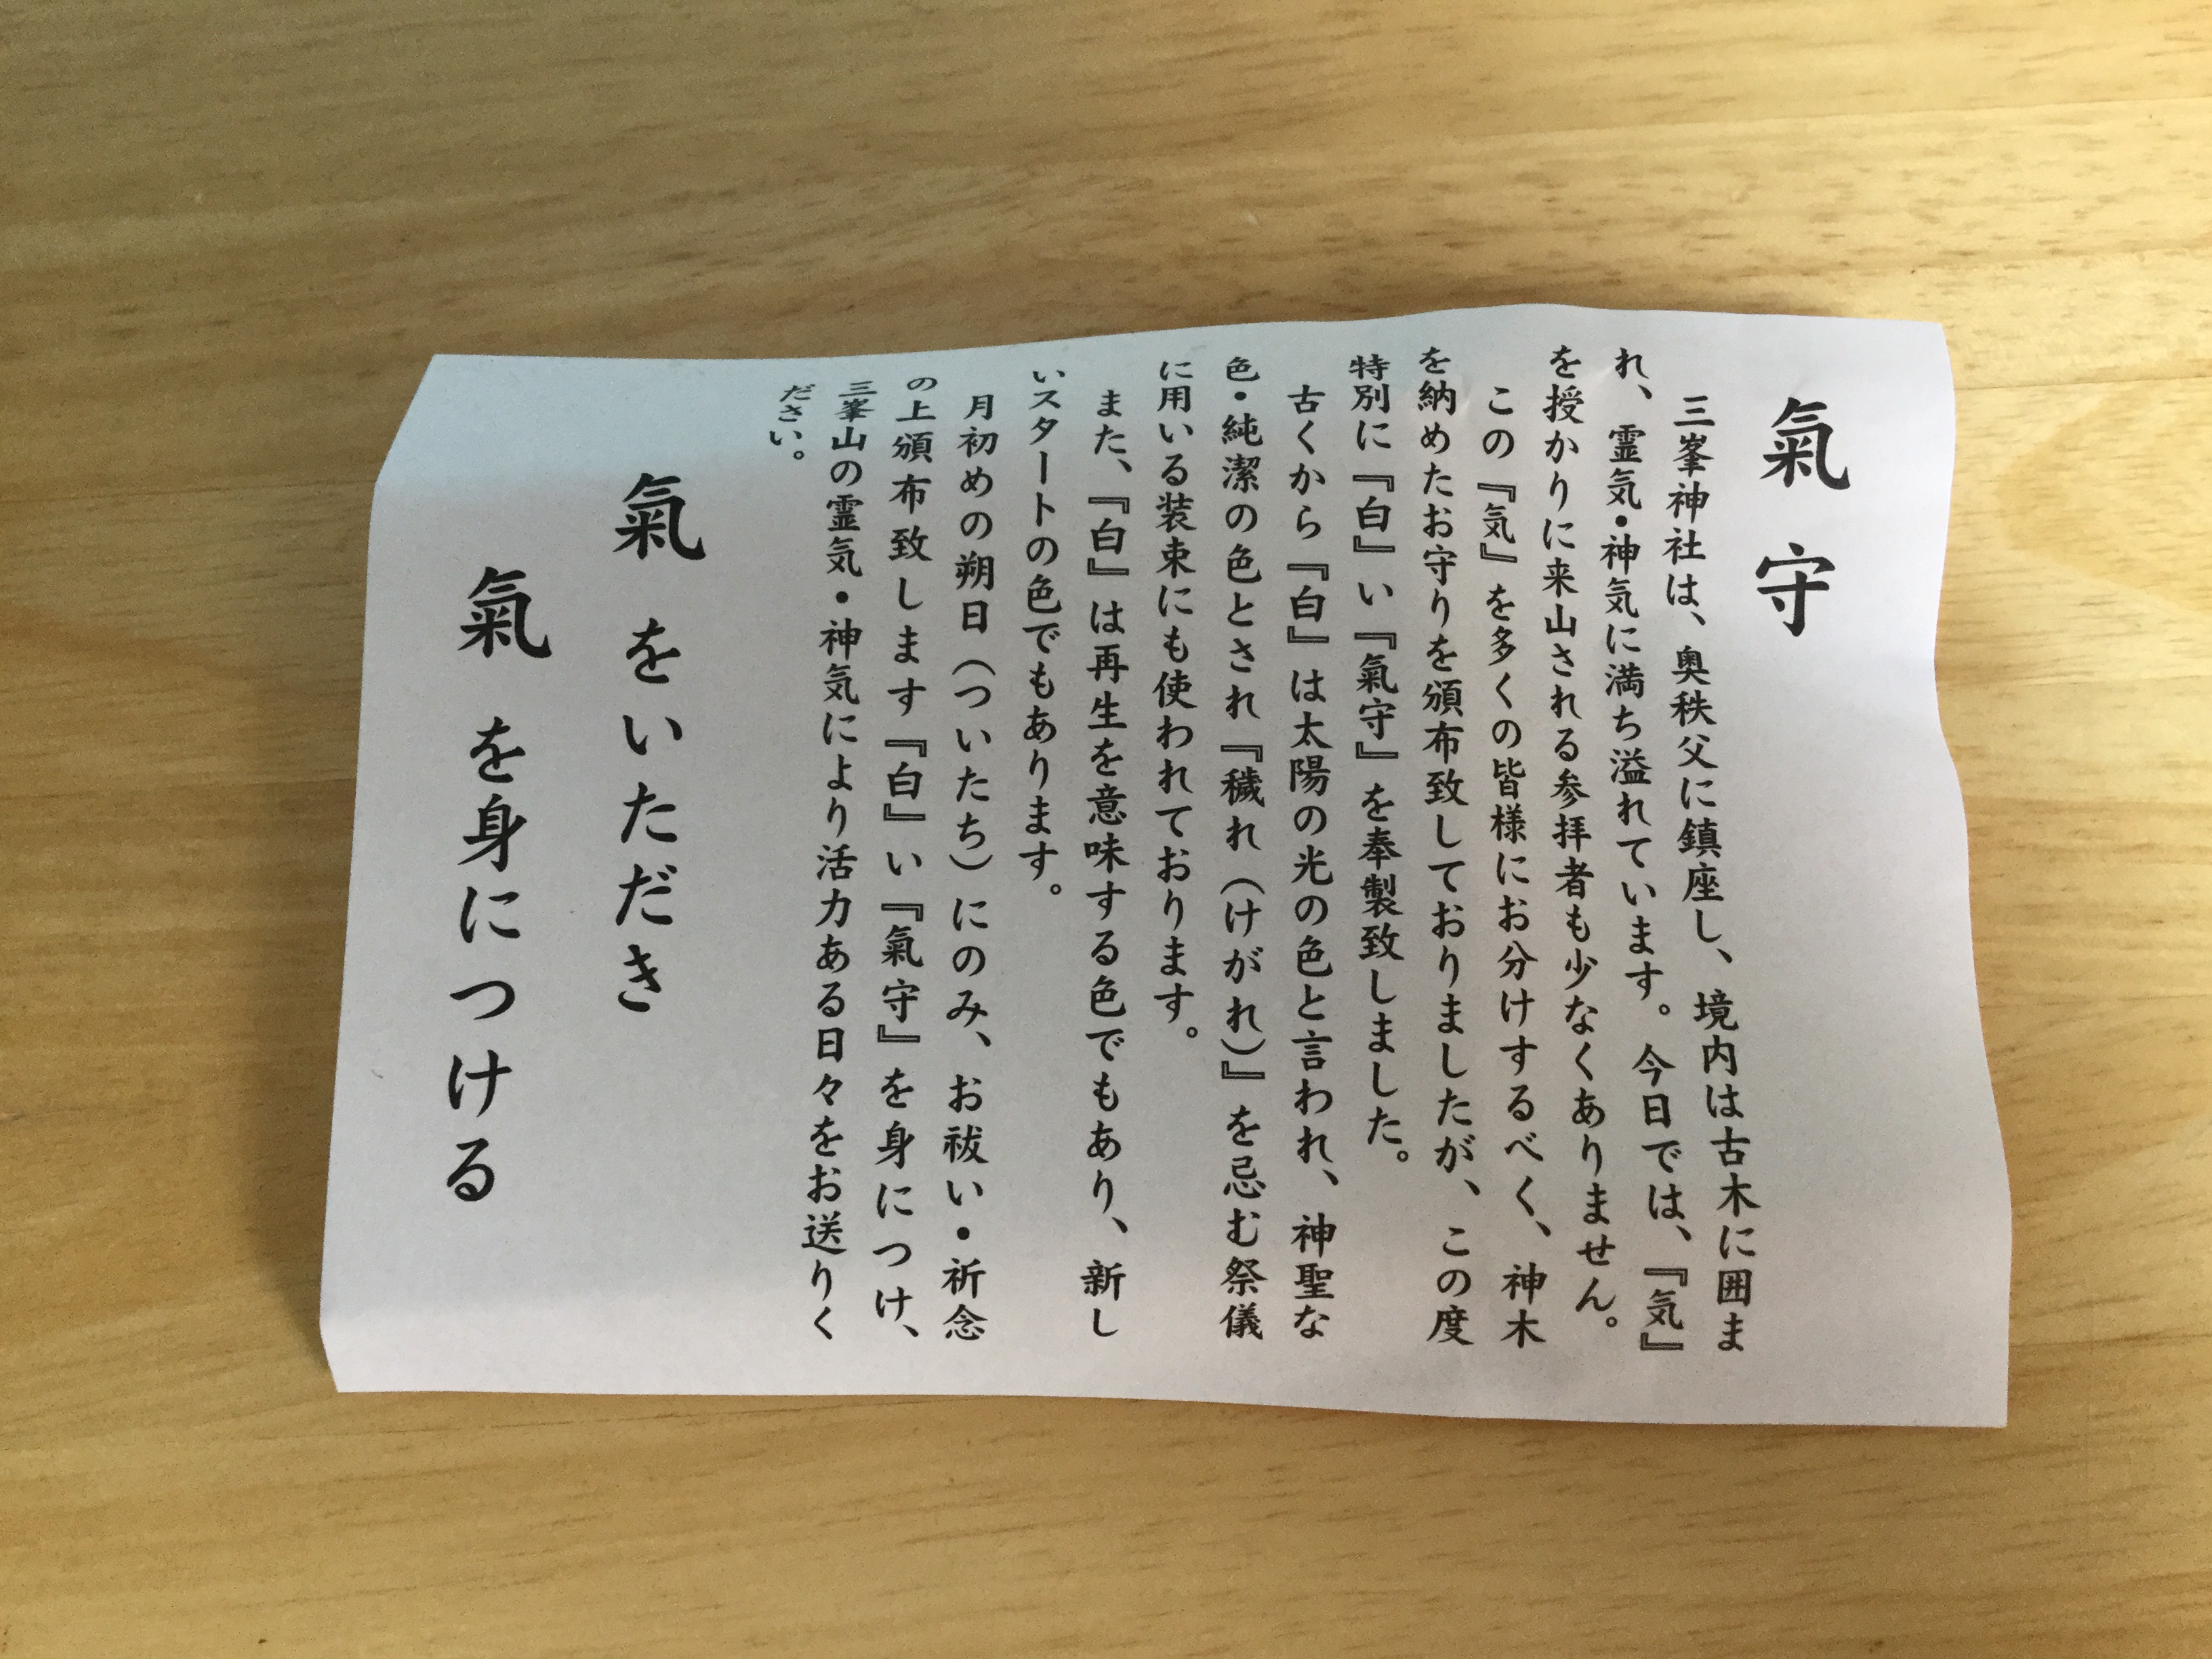 氣守
三峯神社は、奥秩父に鎮座し、境内は古木に囲ま
れ、霊気・神気に満ち溢れています。今日では、『気』
を授かりに来山される参拝者も少なくありません。
この『気』を多くの皆様にお分けするべく、神木
を納めたお守りを頒布致しておりましたが、この度
特別に『白』い『氣守』を奉製致しました。
古くから『白』は太陽の光の色と言われ、神聖な
色・純潔の色とされ『穢れ（けがれ）』を忌む祭儀
に用いる装束にも使われております。
また、『白』は再生を意味する色でもあり、新し
いスタートの色でもあります。
月初めの朔日（ついたち）にのみ、お祓い・祈念
の上頒布致します『白』い『氣守』を身につけ、
三峯山の霊気・神気により活力ある日々をお送りく
ださい。
氣をいただき
氣を身につける